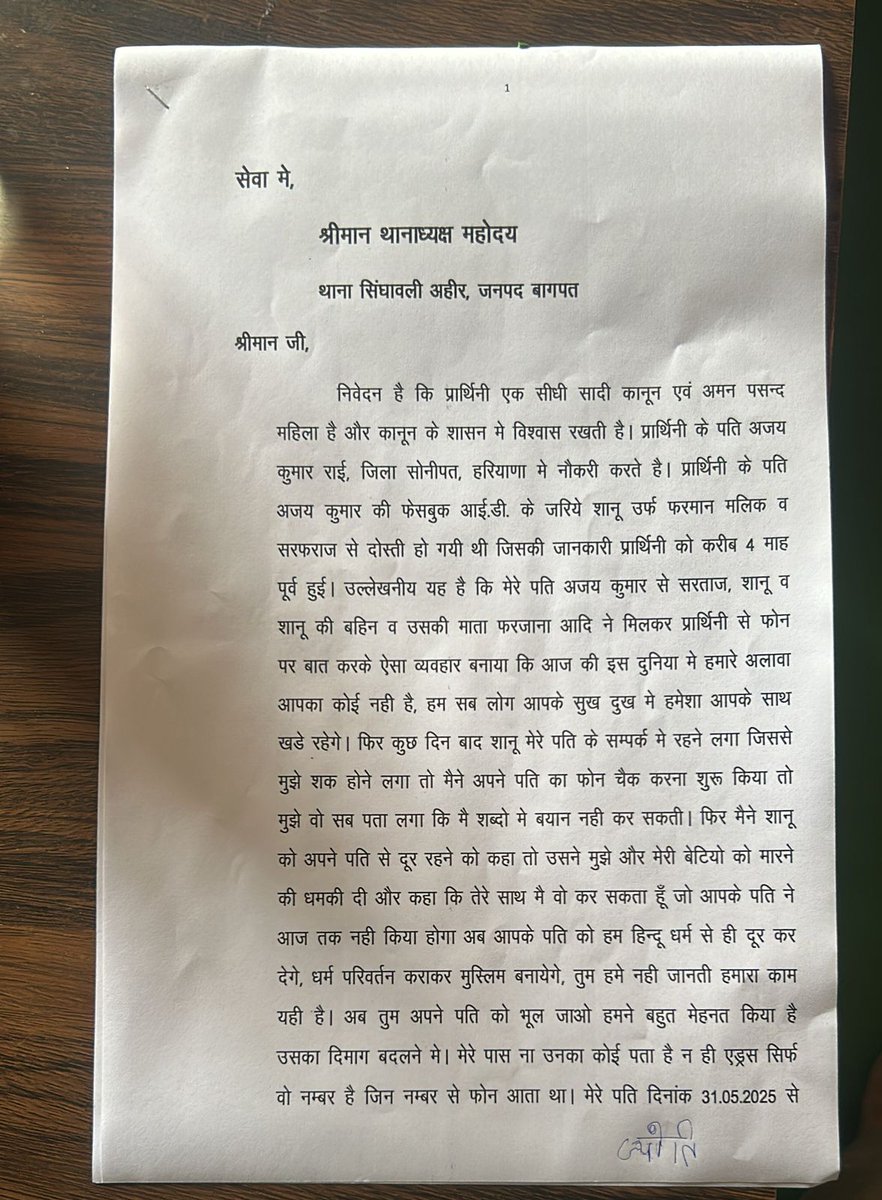 1
सेवा मे,
श्रीमान थानाध्यक्ष महोदय
थाना सिंघावली अहीर, जनपद बागपत
श्रीमान जी,
निवेदन है कि प्रार्थिनी एक सीधी सादी कानून एवं अमन पसन्द
महिला है और कानून के शासन मे विश्वास रखती है। प्रार्थिनी के पति अजय
कुमार राई, जिला सोनीपत, हरियाणा मे नौकरी करते है। प्रार्थिनी के पति
अजय कुमार की फेसबुक आई.डी. के जरिये शानू उर्फ फरमान मलिक व
सरफराज से दोस्ती हो गयी थी जिसकी जानकारी प्रार्थिनी को करीब 4 माह
पूर्व हुई। उल्लेखनीय यह है कि मेरे पति अजय कुमार से सरताज, शानू व
शानू की बहिन व उसकी माता फरजाना आदि ने मिलकर प्रार्थिनी से फोन
पर बात करके ऐसा व्यवहार बनाया कि आज की इस दुनिया मे हमारे अलावा
आपका कोई नही है, हम सब लोग आपके सुख दुख मे हमेशा आपके साथ
खडे रहेगे। फिर कुछ दिन बाद शानू मेरे पति के सम्पर्क मे रहने लगा जिससे
मुझे शक होने लगा तो मैने अपने पति का फोन चैक करना शुरू किया तो
मुझे वो सब पता लगा कि मै शब्दो मे बयान नही कर सकती। फिर मैने शानू
को अपने पति से दूर रहने को कहा तो उसने मुझे और मेरी बेटियो को मारने
की धमकी दी और कहा कि तेरे साथ मै वो कर सकता हूँ जो आपके पति ने
आज तक नही किया होगा अब आपके पति को हम हिन्दू धर्म से ही दूर कर
देगे, धर्म परिवर्तन कराकर मुस्लिम बनायेगे, तुम हमे नही जानती हमारा काम
यही है। अब तुम अपने पति को भूल जाओ हमने बहुत मेहनत किया है
उसका दिमाग बदलने मे। मेरे पास ना उनका कोई पता है न ही एड्रस सिर्फ
वो नम्बर है जिन नम्बर से फोन आता था। मेरे पति दिनांक 31.05.2025 से
ज्योति